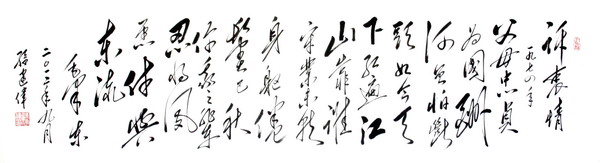 诉衷情
一九七六年
父母忠贞
为国酬
何曾怕断
头如今天
下红遍江
山靠谁
守业未就
身躯倦
鬓已秋
你我之辈
忍将夙
愿付与
东流
毛泽东